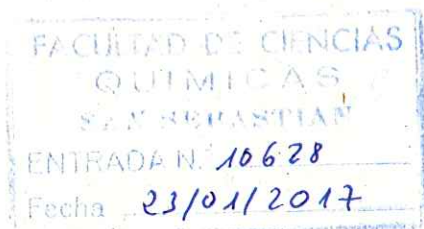 FACULTAD DE CIENCIAS
QUIMICAS
SAN SEBASTIAN
ENTRADA N. 10628
Fecha 23/01/2017